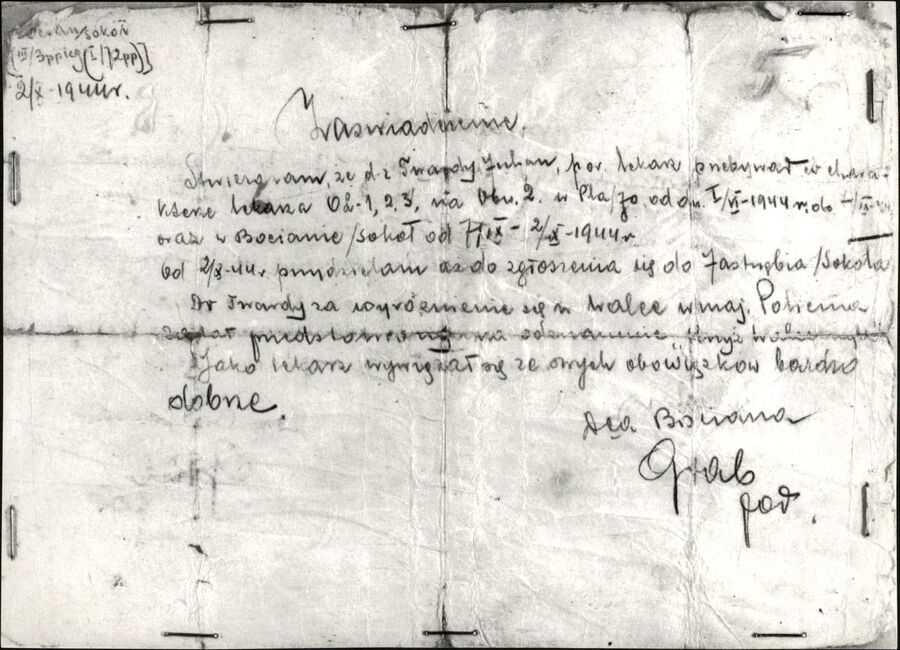 sokół
[III/3 ppleg (I/72pp)]
2/X-1944r.
Zaświadczenie.
Stwierdzam, że dr Twardy Julian, por. lekarz przebywał w chara-
kterze lekarza OL-1, 2, 3, na Obw. 2. w od dn. I/VI-1944r. do
oraz w Bocianie/Sokół od 2/X-1944r.
Od 2/X-44r. przydzielam aż do zgłoszenia się do Jastrzębia/Sokoła
Dr Twardy za wyróżnienie się w walce w maj.
został przedstawiony na odznaczenie "Krzyż
Jako lekarz wywiązał się ze swych obowiązków bardzo
dobrze.
Dca Bociana
Grab
por.